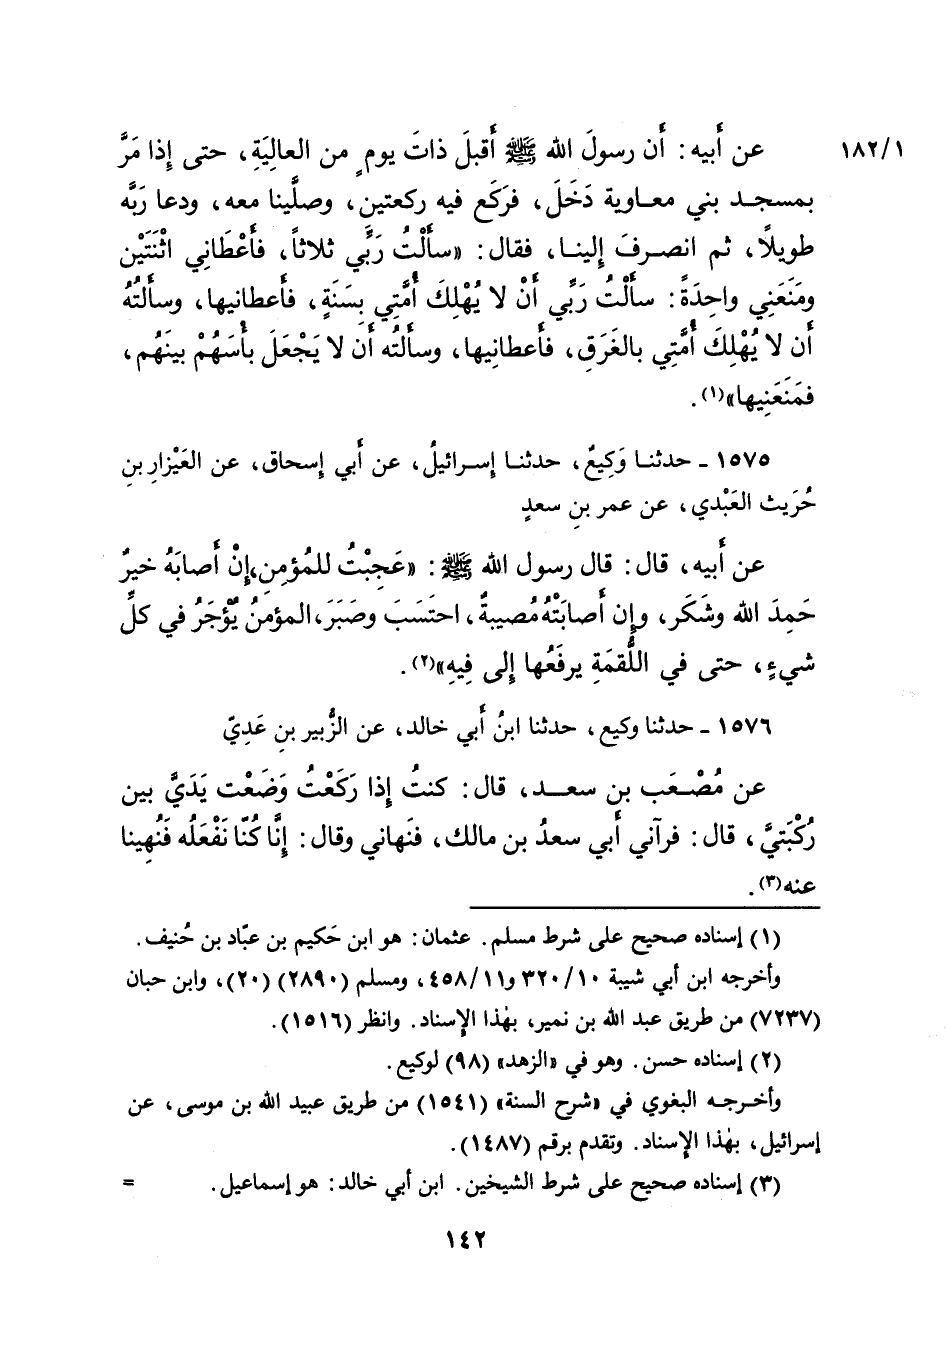 ١/١٨٢
عن أَبيه: أَن رسولَ الله ﷺ أَقبلَ ذاتَ يومٍ من العالِيَةِ، حتى إِذا مَرَّ
بمسجد بني معاوية دَخَلَ، فرَكَع فيه ركعتين، وصلَّينا معه، ودعا رَبَّه
طويلًا، ثم انصرفَ إِلينا، فقال: «سأَلْتُ رَبِّي ثلاثاً، فأَعْطَاني اثْنَتَيْن
ومَنَعَنِي واحِدَةً: سأَلْتُ رَبِّي أَنْ لا يُهْلِكَ أُمَّتِي بِسَنَةٍ، فأَعطانيها، وسأَلتُهُ
أَن لا يُهْلِكَ أُمَّتِي بالغَرَقِ، فأَعطانِيها، وسأَلته أَن لا يَجْعَلَ بأْسَهُمْ بينَهُم،
فمَنَعَنِيها»(١).
١٥٧٥ ـ حدثنا وَكِيعٌ، حدثنا إِسرائيلُ، عن أَبي إِسحاق، عن العَيْزارِ بنِ
حُرَيث العَبْدي، عن عمر بنِ سعدٍ
عن أَبيه، قال: قال رسول الله ﷺ: «عَجِبْتُ للمُؤمِنِ،إِنْ أَصابَهُ خيرٌ
حَمِدَ الله وشَكَر، وإِن أَصابَتْهُ مُصيبةٌ، احتَسَبَ وصَبَرَ،المؤمنُ يُؤْجَرُ في كلِّ
شيءٍ، حتى في اللُّقمَةِ يرفَعُها إِلى فِيهِ»(٢).
١٥٧٦ ـ حدثنا وكيع، حدثنا ابنُ أَبي خالد، عن الزُّبير بنِ عَدِيّ
عن مُصْعَب بن سعد، قال: كنتُ إِذا رَكَعْتُ وَضَعْت يَدَيَّ بين
رُكْبَتيَّ، قال: فرآني أَبي سعدُ بن مالك، فنَهاني وقال: إِنَّا كُنَّا نَفْعَلُه فَنُهِينا
عنه(٣).
(١) إسناده صحيح على شرط مسلم. عثمان: هو ابن حَكيم بن عبّاد بن حُنيف.
وأخرجه ابن أبي شيبة ٣٢٠/١٠ و٤٥٨/١١، ومسلم (٢٨٩٠) (٢٠)، وابن حبان
(٧٢٣٧) من طريق عبد الله بن نمير، بهٰذا الإسناد. وانظر (١٥١٦).
(٢) إسناده حسن. وهو في «الزهد» (٩٨) لوكيع.
وأخرجه البغوي في «شرح السنة» (١٥٤١) من طريق عبيد الله بن موسى، عن
إسرائيل، بهٰذا الإسناد. وتقدم برقم (١٤٨٧).
(٣) إسناده صحيح على شرط الشيخين. ابن أبي خالد: هو إسماعيل. =
١٤٢